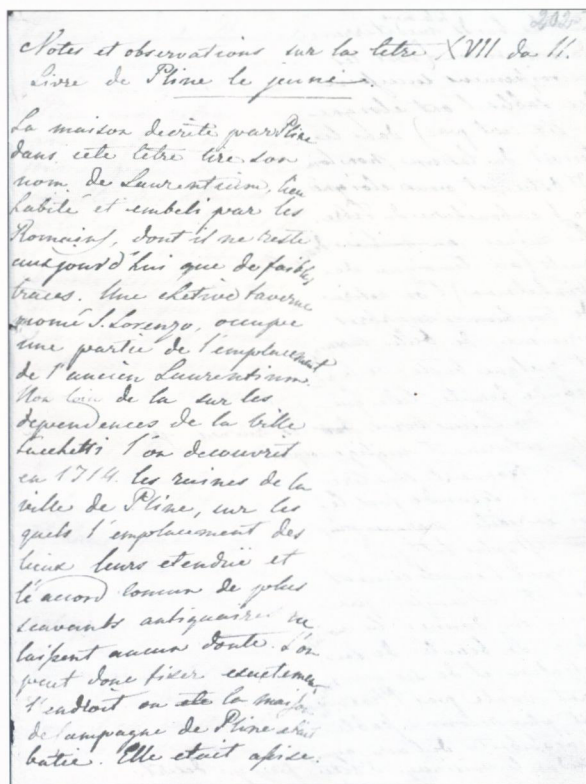 202
Notes et observations sur la letre XVII du II.
Livre de Pline le jeune.
La maison decrite par Pline
dans cete letre tire son
nom de Laurentium, lieu
habité et embeli par les
Romains, dont il ne reste
aujourd'hui que de faibles
traces. Une chetive taverne
nomé S. Lorenzo, occupe
une partie de l'emplacement
de l'ancien Laurentinum.
Non loin de la sur les
dependences de la ville
Sacchetti l'on decouvrit
en 1714. les ruines de la
ville de Pline, sur les
quels l'emplacement des
lieux leurs etendue et
l'accord comun de plus
scavants antiquaires ne
laissent aucun doute. L'on
peut donc fixer exactement
l'endroit ou ete la maison
de campagne de Pline etait
batie. Elle etait assise.